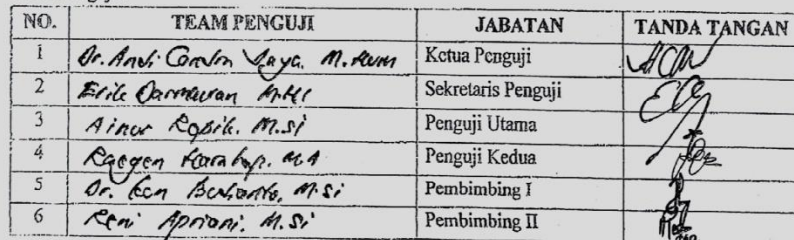 NO. TEAM PENGUJI JABATAN TANDA TANGAN
1 Dr. Andi Candra Jaya. M.Hum Ketua Penguji
2 Erik Darmawan M.HI Sekretaris Penguji
3 Ainur Ropik. M.Si Penguji Utama
4 Raegen Harahap. M.A Penguji Kedua
5 Dr. Budianto, M.Si Pembimbing I
6 Reni Apriani. M.Si Pembimbing II